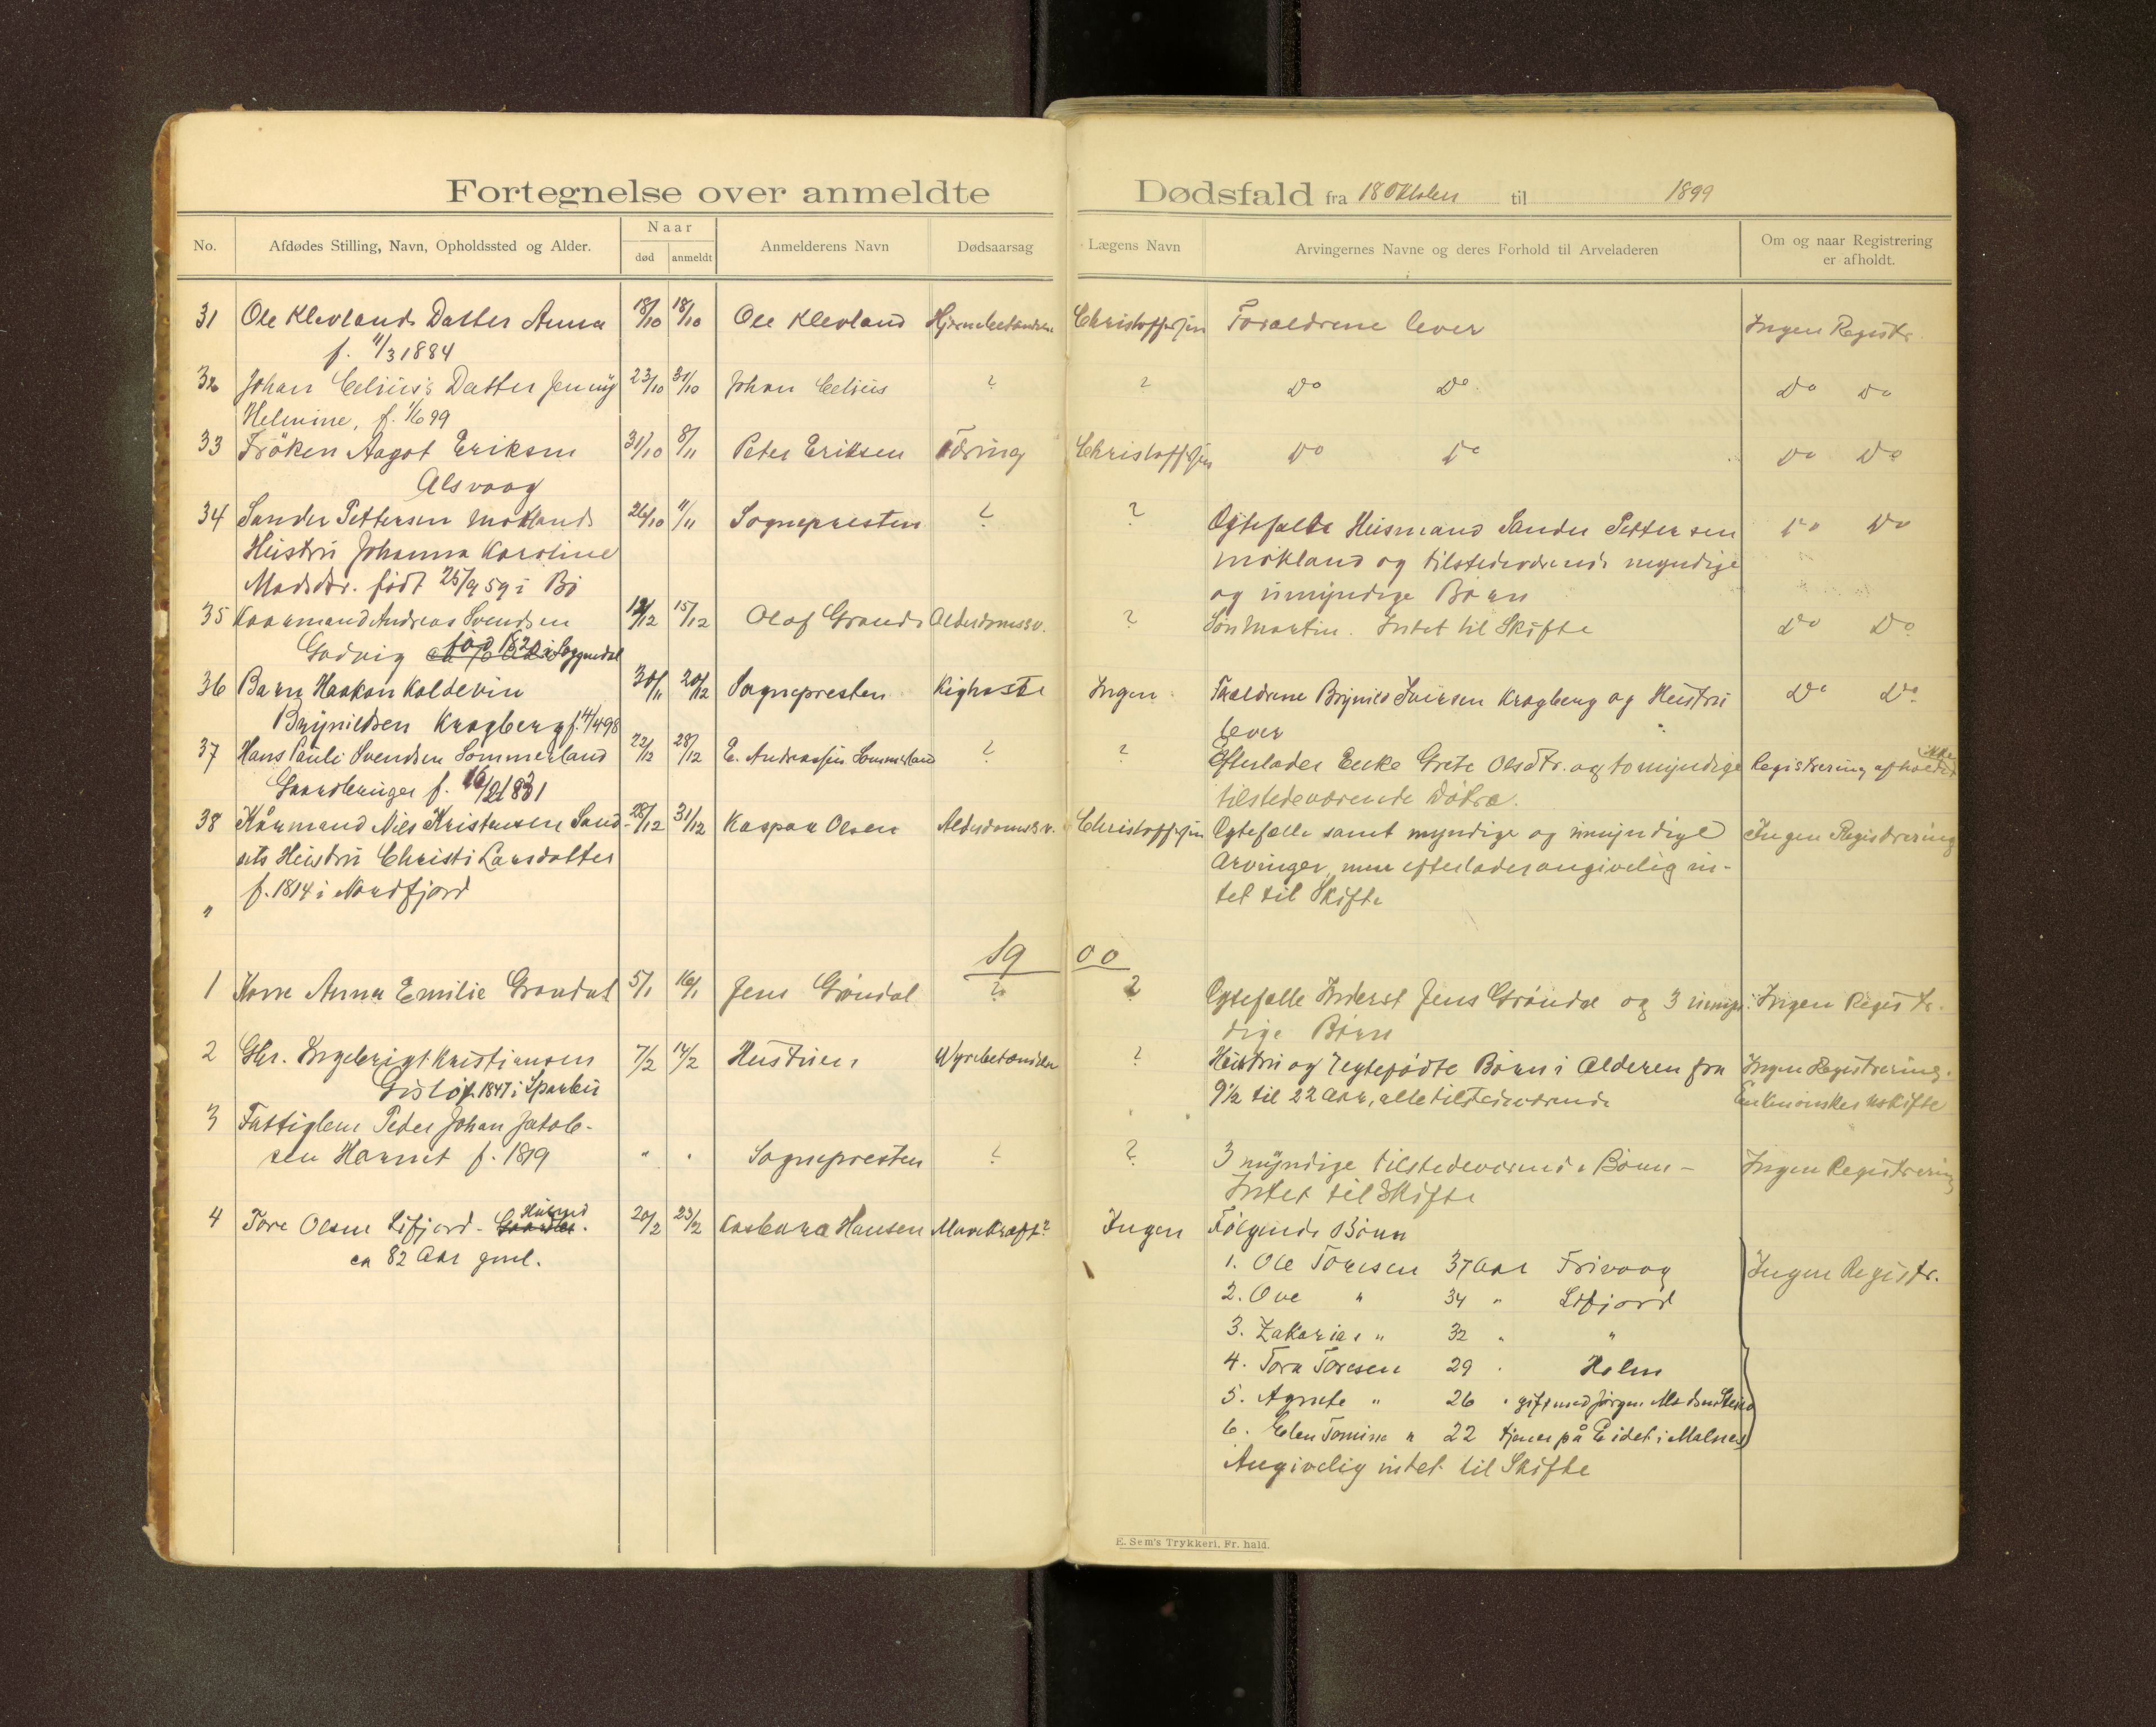 Fortegnelse over anmeldte Dødsfald fra 18 Oktober til 1899
No. Afdødes Stilling, Navn, Opholdssted og Alder. Naar død anmeldt Anmelderens Navn Dødsaarsag Lægens Navn Arvingernes Navne og deres Forhold til Arveladeren Om og naar Registrering er afholdt.
31 Ole Klevlands Datter Anna 18/10 18/10 Ole Klevland Hjernebetændelse Christoffersen Forældrene lever Ingen Registr.
f. 11/3 1884
32 Johan Celius's Datter Jenny 23/10 31/10 Johan Celius ? ? Do Do. Do Do
Helmine, f. 1/6 99
33 Frøken Aagot Eriksen 31/10 8/11 Peter Eriksen Tæring Christoffersen Do Do Do Do
Alsvaag
34 Sander Pettersen Mokland 26/10 11/11 Sognepresten ? ? Ægtefælle Husmand Sander Pettersen Do Do
Hustru Johanna Karoline Mokland og tilstedeværende myndige
Madsdtr. født 25/9 59 i Bø og umyndige Børn
35 Kaarmand Andreas Svendsen 12/12 15/12 Olaf Grande Alderdomssv. ? Søn Martin. Intet til Skifte Do Do
Godvig fød 1820 i Soggendal
36 Barn Haakon Koldevin 30/11 20/12 Sognepresten Kighoste Ingen Forældrene Brynild Iversen Kragberg og Hustru Do Do
Brynildsen Kragberg f. 4/4 98 lever
37 Hans Pauli Svendsen Sommerland 22/12 28/12 E. Andreassen Sommerland ? ? Efterlader Enke Grete Olsdtr. og to myndige Registrering ikke afholdt
Gaardbruger f. 16/2 1831 tilstedeværende Døtre.
38 Kårmand Nils Kristensen Sand- 28/12 31/12 Kaspar Olsen Alderdomssv. Christoffersen Ægtefælle samt myndige og umyndige Ingen Registrering
sets Hustru Christi Larsdatter Arvinger, men efterlader angivelig in-
f. 1814 i Nordfjord tet til Skifte
"
1900
1 Kone Anna Emilie Grøndal 5/1 16/1 Jens Grøndal ? ? Ægtefælle Inderst Jens Grøndal og 3 umyn- Ingen Registr.
dige Børn
2 Gbr. Ingebrigt Kristiansen 7/2 14/2 Hustruen Nyrebetændelse ? Hustru og 7 ægtefødte Børn i Alderen fra Ingen Registrering.
Gisløy f. 1847 i Sparbu 9 1/2 til 22 Aar, alle tilstedeværende Enken ønsker uskifte
3 Fattiglem Peder Johan Jakob-
sen Hannet f. 1819 " " Sognepresten ? ? 3 myndige tilstedeværende Børn - Ingen Registrering
Intet til Skifte
4 Tore Olsen Lifjord - Husmd. 20/2 23/2 Hansen Mavekræft? Ingen Følgende Børn
ca 82 Aar gml.
1. Ole Toresen 37 Aar Frivaag Ingen Registr.
2. Ove " 34 " Lifjord
3. Zakarias " 32 " "
4. Tora Toresen 29 " Holm
5. Agnete " 26 " gift med Jørgen Madsen Steiro
6. Elen Tomine " 22 tjener på Eidet i Malnes
Angivelig intet til Skifte
E. Sem's Trykkeri, Fr. hald.